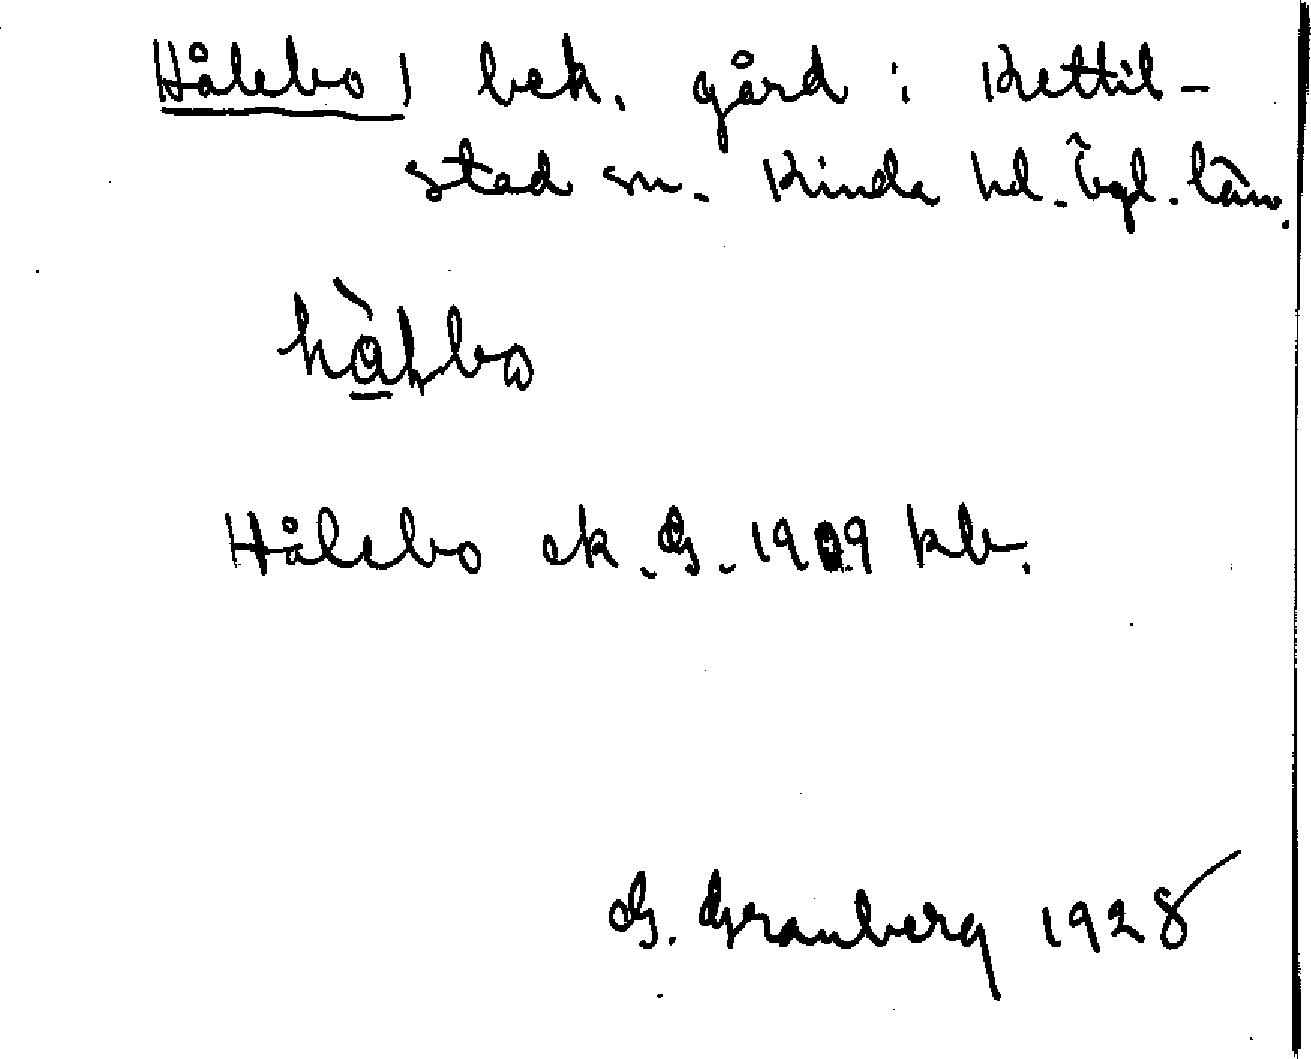 Hålebo) bek. gård i Kettil-
stad sn. Kinda hd. Ögl. län.
Hålebo ek. G. 1909 kb.
G. Granberg 1928